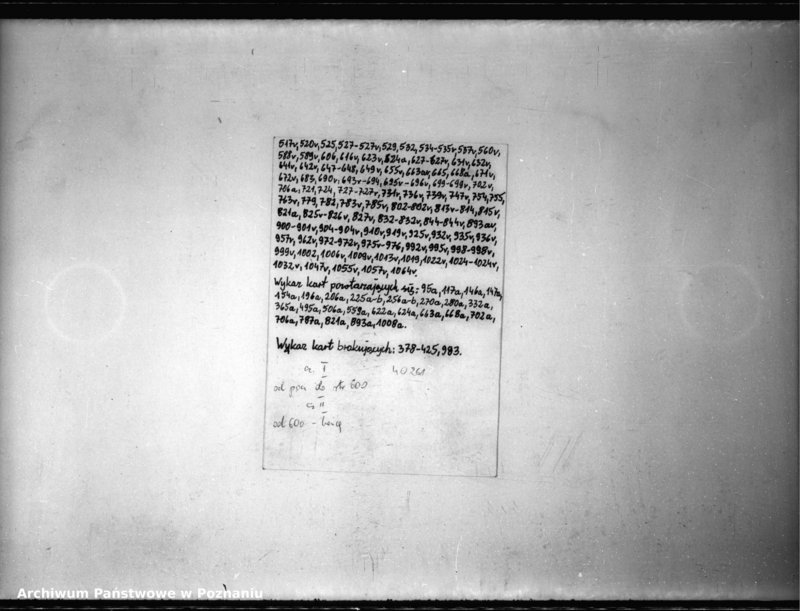 517v, 520v, 525, 527-527v, 529, 532, 534-535v, 537v, 560v,
588v, 589v, 606, 616v, 623v, 624a, 627-627v, 631v, 632v,
641v, 642v, 647-648, 649v, 655v, 663av, 665, 668a, 671v,
672v, 683, 690v, 693v-694, 695v-696v, 699-699v, 702v,
706a, 721, 724, 727-727v, 731v, 736v, 739v, 747v, 754, 755,
763v, 779, 782, 783v, 785v, 802-802v, 813v-814, 815v,
821a, 825v-826v, 827v, 832-832v, 844-844v, 893av,
900-901v, 904-904v, 910v, 919v, 925v, 932v, 935v, 936v,
957v, 962v, 972-972v, 975v-976, 992v, 995v, 998-998v,
999v, 1002, 1006v, 1009v, 1013v, 1019, 1022v, 1024-1024v,
1032v, 1047v, 1055v, 1057v, 1064v.
Wykaz kart powtarzających się: 95a, 117a, 146a, 147a,
154a, 196a, 206a, 225a-b, 256a-b, 270a, 280a, 332a,
365a, 495a, 506a, 559a, 622a, 624a, 663a, 668a, 702a,
706a, 787a, 821a, 893a, 1008a.
Wykaz kart brakujących: 378-425, 983.
cz. I 40261
od do str 600
cz II
od 600 -
Archiwum Państwowe w Poznaniu